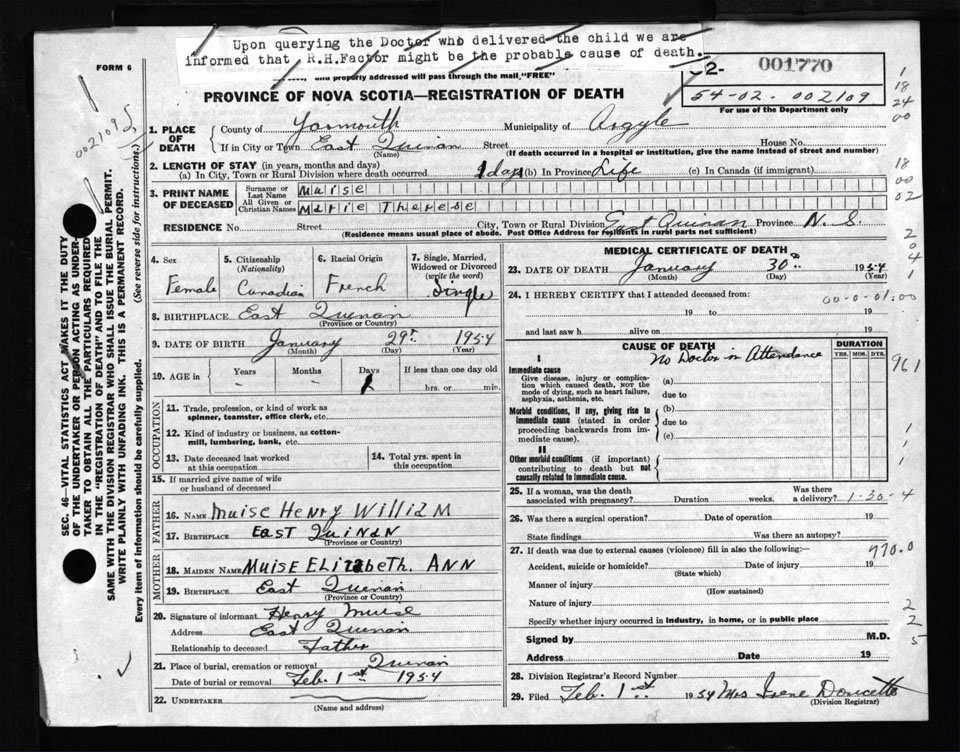 Upon querying the Doctor who delivered the child we are
informed that R.H.Factor might be the probable cause of death.
FORM 6
and properly addressed will pass through the mail, "FREE"
2-
001770
54-02-002109
For use of the Department only
PROVINCE OF NOVA SCOTIA—REGISTRATION OF DEATH
002109
SEC. 46—VITAL STATISTICS ACT MAKES IT THE DUTY
OF THE UNDERTAKER OR PERSON ACTING AS UNDER-
TAKER TO OBTAIN ALL THE PARTICULARS REQUIRED
IN THE "REGISTRATION OF DEATH" AND TO FILE THE
SAME WITH THE DIVISION REGISTRAR WHO SHALL ISSUE THE BURIAL PERMIT.
WRITE PLAINLY WITH UNFADING INK. THIS IS A PERMANENT RECORD.
Every item of information should be carefully supplied. (See reverse side for instructions.)
1. PLACE OF DEATH
County of Yarmouth Municipality of Argyle
If in City or Town East Quinan Street House No.
(Name) (If death occurred in a hospital or institution, give the name instead of street and number)
2. LENGTH OF STAY (in years, months and days)
(a) In City, Town or Rural Division where death occurred 1 day (b) In Province Life (c) In Canada (if immigrant)
3. PRINT NAME OF DECEASED
Surname or Last Name Muise
All Given or Christian Names Marie Therese
RESIDENCE No. Street City, Town or Rural Division East Quinan Province N.S.
(Residence means usual place of abode. Post Office Address for residents in rural parts not sufficient)
4. Sex Female
5. Citizenship (Nationality) Canadian
6. Racial Origin French
7. Single, Married, Widowed or Divorced (write the word) Single
8. BIRTHPLACE East Quinan
(Province or Country)
9. DATE OF BIRTH January 29th 1954
(Month) (Day) (Year)
10. AGE in Years - Months - Days 1 If less than one day old hrs. or min.
OCCUPATION
11. Trade, profession, or kind of work as spinner, teamster, office clerk, etc.
12. Kind of industry or business, as cotton-mill, lumbering, bank, etc.
13. Date deceased last worked at this occupation
14. Total yrs. spent in this occupation
15. If married give name of wife or husband of deceased
FATHER
16. NAME Muise Henry William
17. BIRTHPLACE East Quinan
(Province or Country)
MOTHER
18. MAIDEN NAME Muise Elizabeth. Ann
19. BIRTHPLACE East Quinan
(Province or Country)
20. Signature of informant Henry Muise
Address East Quinan
Relationship to deceased Father
21. Place of burial, cremation or removal Quinan
Date of burial or removal Feb. 1st 1954
22. UNDERTAKER
(Name and address)
MEDICAL CERTIFICATE OF DEATH
23. DATE OF DEATH January 30th 1954
(Month) (Day) (Year)
24. I HEREBY CERTIFY that I attended deceased from:
00-0-01.00
19 to 19
and last saw h alive on 19
CAUSE OF DEATH DURATION
No Doctor in Attendance YRS. MOS. DYS.
I
Immediate cause
Give disease, injury or complication which caused death, NOT the mode of dying, such as heart failure, asphyxia, asthenia, etc.
(a)
due to
Morbid conditions, if any, giving rise to immediate cause (stated in order proceeding backwards from immediate cause).
(b)
due to
(c)
II
Other morbid conditions (if important) contributing to death but not causally related to immediate cause.
25. If a woman, was the death associated with pregnancy? Duration weeks. Was there a delivery? 1-30-4
26. Was there a surgical operation? Date of operation 19
State findings Was there an autopsy?
27. If death was due to external causes (violence) fill in also the following:— 770.0
Accident, suicide or homicide? Date of injury 19
(State which)
Manner of injury
(How sustained)
Nature of injury
Specify whether injury occurred in industry, in home, or in public place
Signed by M.D.
Address Date 19
28. Division Registrar's Record Number
29. Filed Feb. 1st 1954 Mrs Irene Doucette
(Division Registrar)
1
18
24
00
18
00
02
2
0
4
1
961
1
1
2
2
5